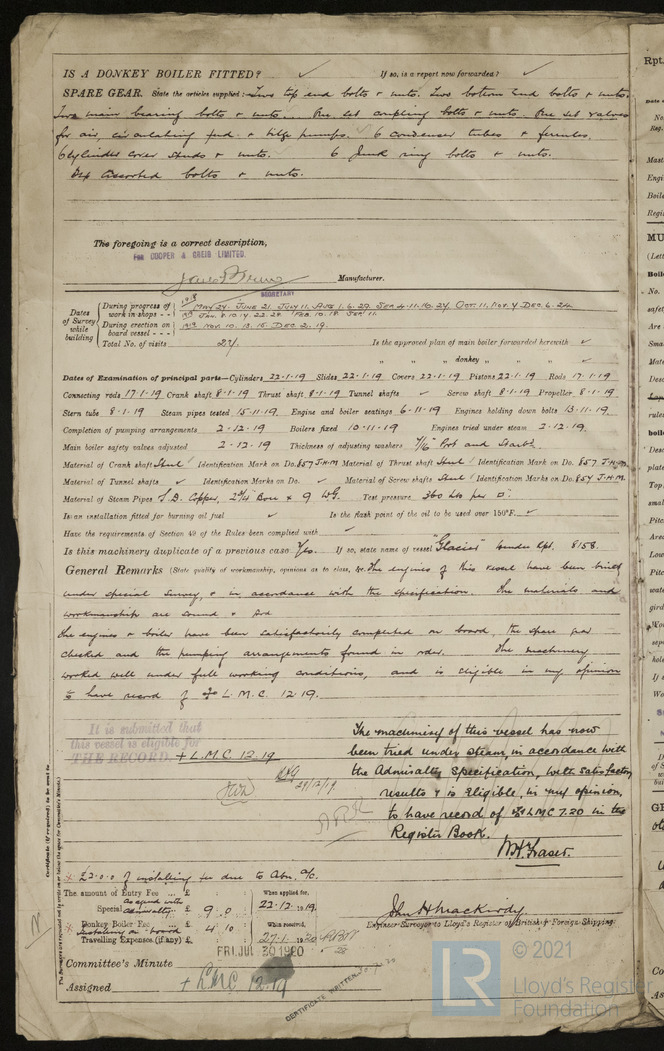 IS A DONKEY BOILER FITTED? ✓ If so, is a report now forwarded? ✓
SPARE GEAR. State the articles supplied:— Two top end bolts & nuts. Two bottom end bolts & nuts.
Two main bearing bolts & nuts. One set coupling bolts & nuts. One set valves
for air, circulating feed & bilge pumps. ✓ 6 condenser tubes & ferrules.
6 cylinder cover studs & nuts. 6 Junk ring bolts & nuts.
assorted bolts & nuts.
The foregoing is a correct description,
For COOPER & GREIG LIMITED.
Manufacturer.
SECRETARY
Dates of Survey while building
During progress of work in shops - - 1918 MAY 24. JUNE 21. JULY 11. AUG 1. 6. 29. SEP. 4. 11. 18. 24. OCT. 11. NOV. 4 DEC. 6. 24.
During erection on board vessel - - - 1919 NOV. 10. 13. 15. DEC. 2. 19.
Total No. of visits 24 Is the approved plan of main boiler forwarded herewith ✓
" " " donkey " " " ✓
Dates of Examination of principal parts—Cylinders 22.1.19 Slides 22.1.19 Covers 22.1.19 Pistons 22.1.19 Rods 17.1.19
Connecting rods 17.1.19 Crank shaft 8.1.19 Thrust shaft 8.1.19 Tunnel shafts ✓ Screw shaft 8.1.19 Propeller 8.1.19
Stern tube 8.1.19 Steam pipes tested 15.11.19 Engine and boiler seatings 6.11.19 Engines holding down bolts 13.11.19
Completion of pumping arrangements 2.12.19 Boilers fixed 10.11.19 Engines tried under steam 2.12.19
Main boiler safety valves adjusted 2.12.19 Thickness of adjusting washers 7/16" Port and Starbd.
Material of Crank shaft Steel Identification Mark on Do. 857 J.H.M Material of Thrust shaft Steel Identification Mark on Do. 857 J.H.M.
Material of Tunnel shafts ✓ Identification Marks on Do. ✓ Material of Screw shafts Steel Identification Marks on Do. 857 J.H.M.
Material of Steam Pipes S.D. Copper, 2¾ Bore × 9 W.G. Test pressure 360 lbs per □"
Is an installation fitted for burning oil fuel ✓ Is the flash point of the oil to be used over 150°F. ✓
Have the requirements of Section 49 of the Rules been complied with ✓
Is this machinery duplicate of a previous case Yes. If so, state name of vessel "Glacier" Rpt. 8158.
General Remarks (State quality of workmanship, opinions as to class, &c. The engines of this vessel have been built
under special survey, & in accordance with the specification. The materials and
workmanship are sound & good
The engines & boiler have been satisfactorily completed on board, the spare gear
checked and the pumping arrangements found in order. The machinery
worked well under full working conditions, and is eligible in my opinion
to have record of ✠ L.M.C. 12.19.
It is submitted that
this vessel is eligible for
THE RECORD. + L.M.C. 12.19
29/12/19
The machinery of this vessel has now
been tried under steam, in accordance with
the Admiralty Specification, with satisfactory
results & is eligible, in my opinion,
to have record of ✠ LMC 7.20 in the
Register Book.
W. H. Fraser.
Certificate (if required) to be sent to
(The Surveyors are requested not to write on or below the space for Committee's Minute.)
× £2.0.0 of installing fee due to Abn. a/c.
The amount of Entry Fee ... £
As agreed with
Special admiralty £ 9 . 0
Donkey Boiler Fee ... £
× Installing on board 4 10
Travelling Expenses (if any) £
When applied for,
22.12.1919.
When received,
27.1.1920
John H Mackirdy
Engineer Surveyor to Lloyd's Register of British & Foreign Shipping.
FRI. JUL 30 1920
Committee's Minute
Assigned + LMC 12.19
CERTIFICATE WRITTEN
© 2021
LR
Lloyd's Register
Foundation